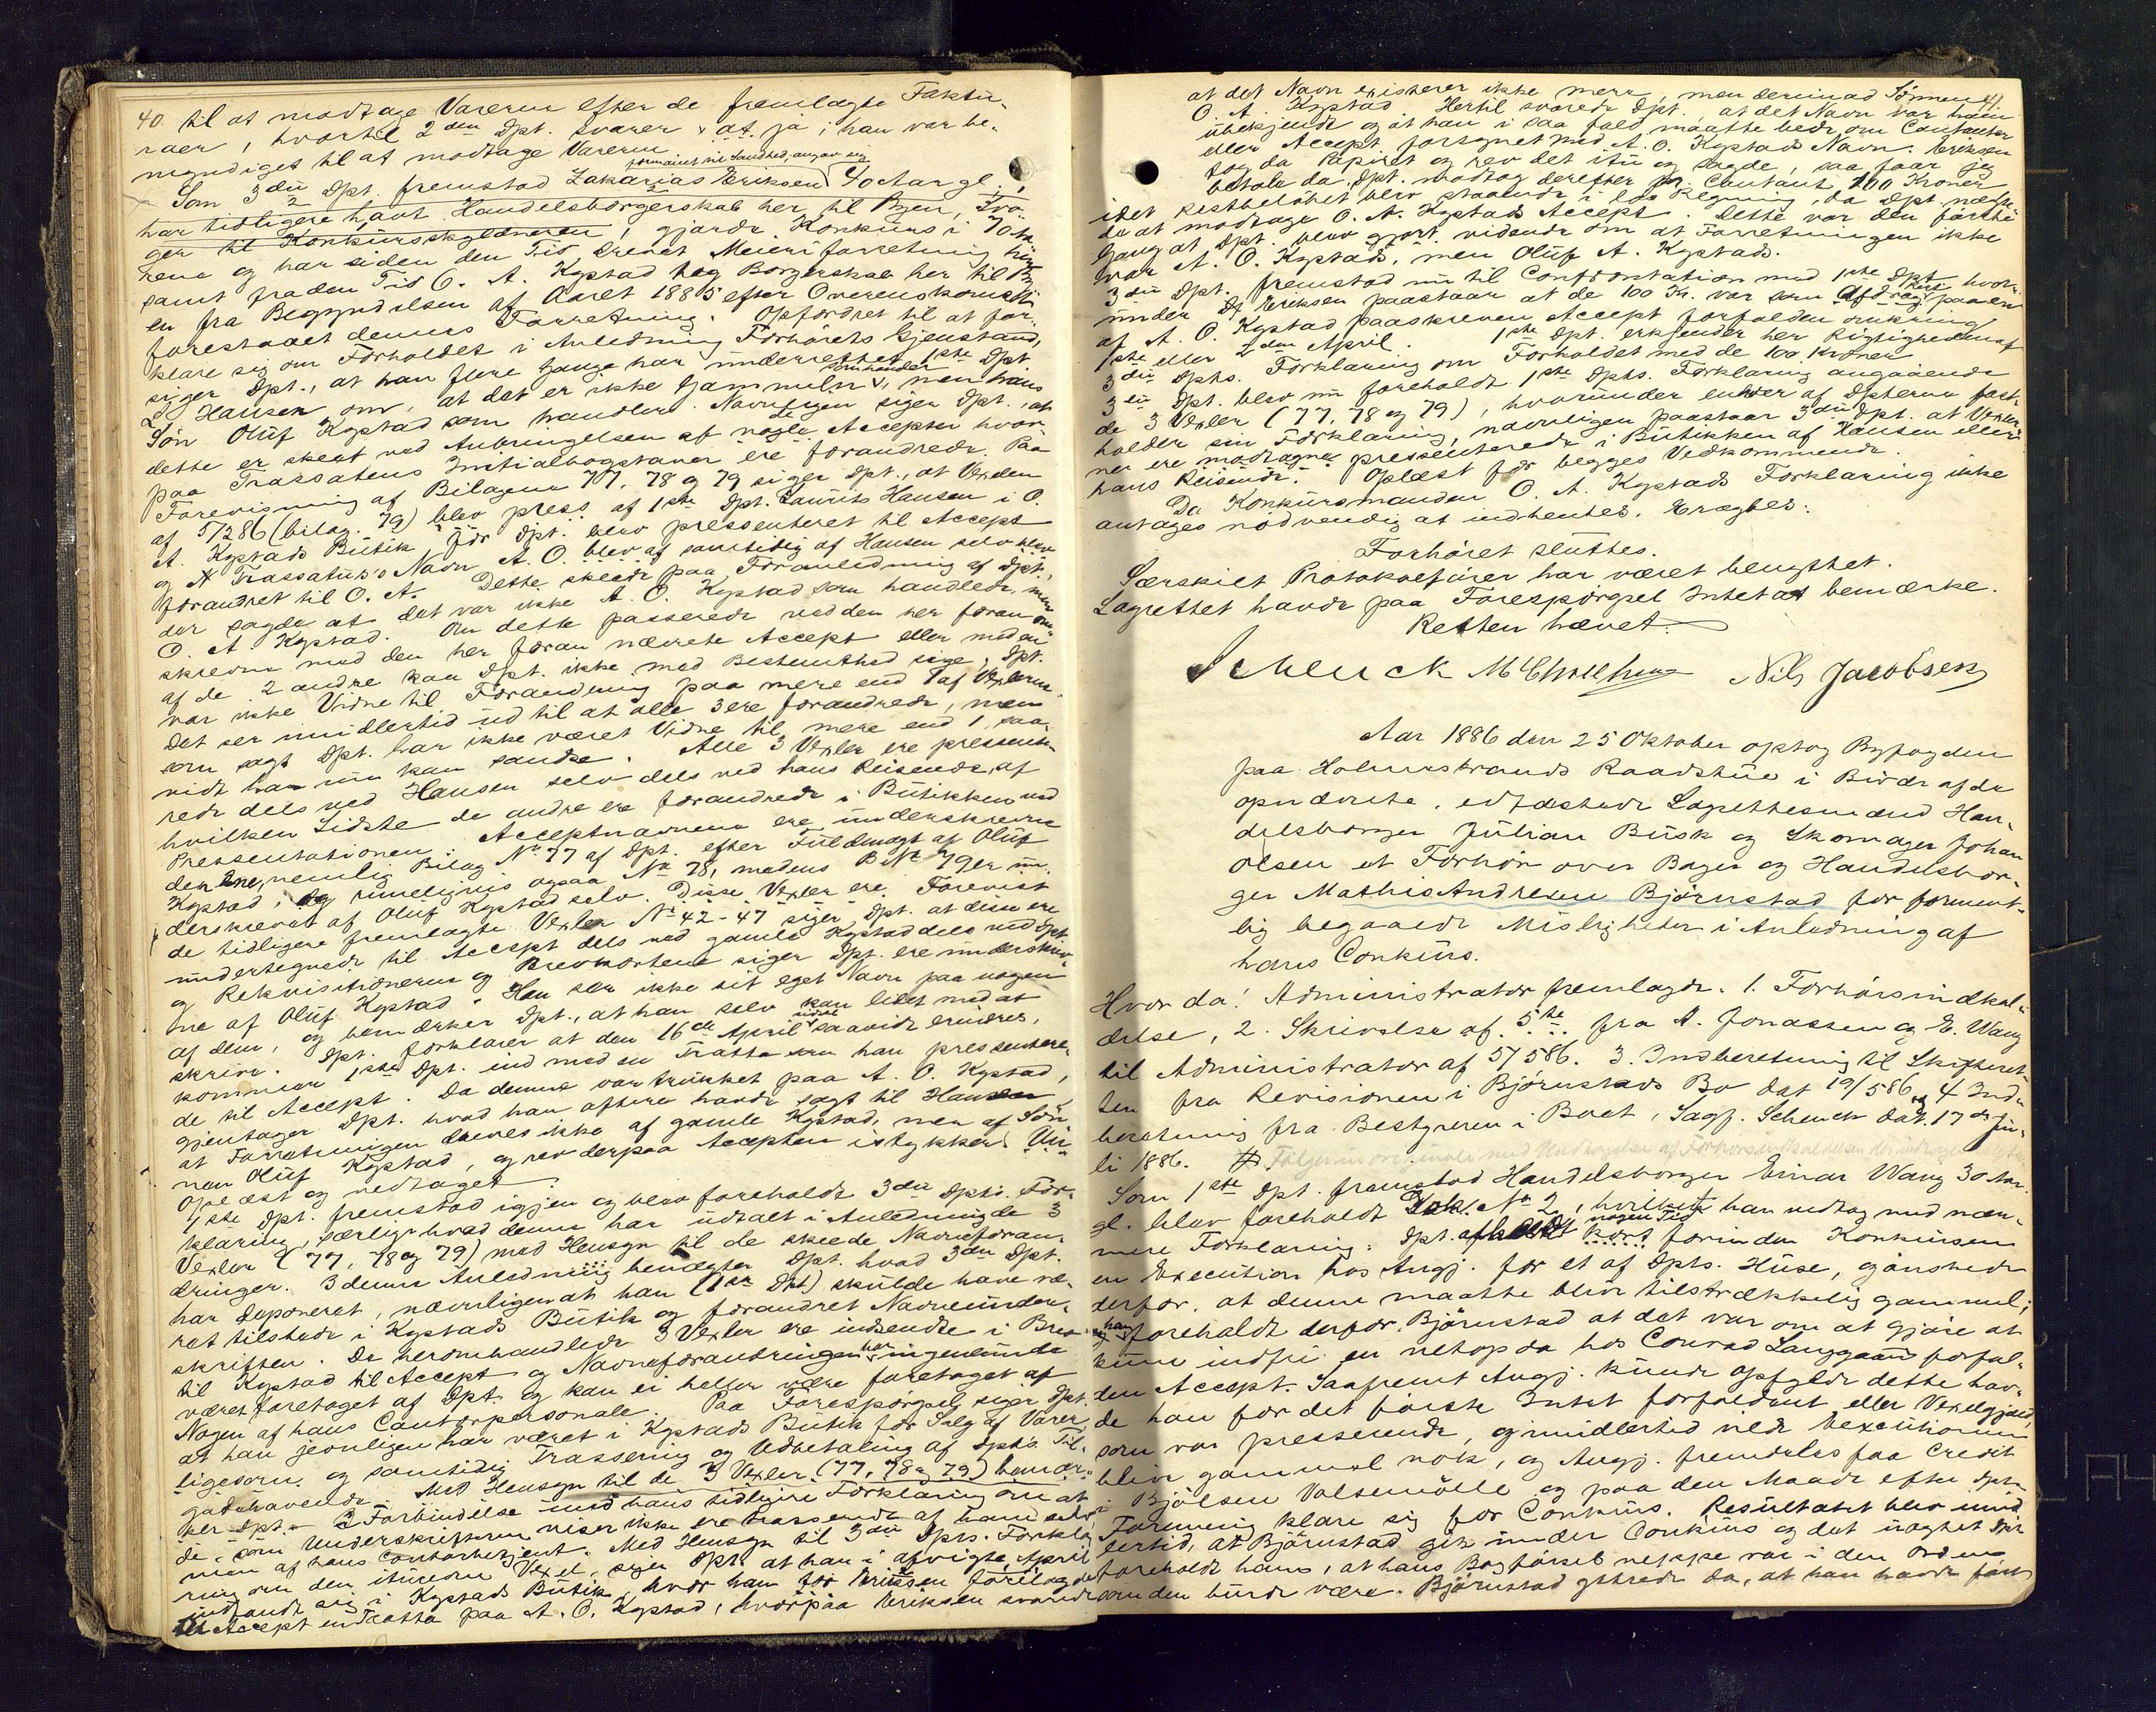 40. til at modtage Varerne efter de fremlagte Faktu-
raer, hvortil 2den Dpt. svarer at ja; han var be-
myndiget til at modtage Varerne.
formanet til Sandhed, angav sig
Som 3die Dpt. fremstod Zakarias Eriksen 40 Aar gl.,
har tidligere havt Handelsborgerskab her til Byen, Svo-
ger til Konkursskyldneren, gjorde Konkurs i 70
rene og har siden den Tid drevet Meieriforretning her
samt fra den Tid O. A. Kystad tog Borgerskab her til By
en fra Begyndelsen af Aaret 1885 efter Overenskomst
forestaaet dennes Forretning. Opfordret til at for-
klare sig om Forholdet i Anledning Forhørets Gjenstand,
siger Dpt., at han flere Gange har underrettet 1ste Dpt.
Hansen om, at det er ikke Gammelen som handler, men hans
Søn Oluf Kystad som handler. Navnligen siger Dpt., at
dette er skeet ved Anbringelsen af nogle Accepter hvor
paa Trassatens Initialbogstaver ere forandrede. Paa
Forevisning af Bilagene 77, 78 og 79 siger Dpt., at Vexlen
af 5/2 86 (bilag. 79) blev press. af 1ste Dpt. Laurits Hansen i O.
A. Kystads Butik før Dpt. blev pressenteret til Accept
og Trassatus's Navn A. O. blev af samtidig af Hansen selv blev
forandret til O. A. Dette skede paa Foranledning af Dpt.,
der sagde at det var ikke A. O. Kystad som handlede, men
O. A. Kystad. Om dette passerede ved den her foran om-
skrevne med den her foran nævnte Accept eller med en
af de 2 andre kan Dpt. ikke med Bestemthed sige, Dpt.
var ikke Vidne til Forandring paa mere end 1 af Vexlerne.
Det ser imidlertid ud til at alle 3 ere forandrede, men
som sagt Dpt. har ikke været Vidne til mere end 1, saa-
vidt han nu kan sandse. Alle 3 Vexler ere pressente-
rede dels ved Hansen selv dels ved hans Reisende, af
hvilken Sidste de andre ere forandrede i Butikken ved
Pressentationen. Acceptnavnene ere underskrevne
den ene, nemlig Bilag No 77 af Dpt. efter Fuldmagt af Oluf
Kystad; og rimeligvis ogsaa No 78, medens B No 79 er un-
derskrevet af Oluf Kystad selv. Disse Vexler ere Forevist
de tidligere fremlagte Vexler No 42-47 siger Dpt. at disse ere
undertegnede til Accept dels ved gamle Kystad dels ved Dpt
og Rekvisitionerne og Brevkortene siger Dpt. ere underskriv-
ne af Oluf Kystad. Han ser ikke sit eget Navn paa nogen
af dem, og bemærker Dpt., at han selv kun lidet med at
skrive. Dpt. forklarer at den 16de April sidst saavidt erindres,
kommer 1ste Dpt. ind med en Tratte som han pressentere-
de til Accept. Da denne var trukket paa A. O. Kystad,
gjentager Dpt. hvad han oftere havde sagt til Hansen
at Forretningen dreves ikke af gamle Kystad, men af Søn
nen Oluf Kystad, og rev derpaa Accepten istykker.
Oplæst og vedtaget.
1ste Dpt. fremstod igjen og blev foreholdt 3die Dpts. For-
klaring, særlig hvad denne har udtalt i Anledning de 3
Vexler (77, 78 og 79) med Hensyn til de skeede Navneforan-
dringer. I denne Anledning benægter Dpt. hvad 3die Dpt.
har deponeret, navnligen at han (1ste Dpt) skulde have væ-
ret tilstede i Kystads Butik og forandret Navneunder-
skriften. De heromhandlede 3 Vexler ere indsendte i Brev
til Kystad til Accept og Navneforandringen har ingenlunde
været foretaget af Dpt. og kan ei heller være foretaget af
Nogen af hans Contorpersonale. Paa Forespørgsel siger Dpt.
at han jevnligen har været i Kystads Butik for Salg af Varer,
ligesom og samtidig Trassering og Udbetaling af Dpts. Til-
godehavende. Med Hensyn til de 3 Vexler (77, 78 og 79) bemær-
ker Dpt. i Forbindelse med hans tidligere Forklaring om at
de, som Underskrifterne viser ikke ere trasserede af ham selv
men af hans Contorbetjent. Med Hensyn til 3die Dpts. Forkla
ring om den iturevne Vexel, siger Dpt. at han i afvigte April
indfandt sig i Kystads Butik, hvor han for Eriksen forelagde
til Accept en Tratta paa A. O. Kystad, hvorpaa Eriksen svarede
41.
at det Navn existerer ikke mere, men derimod Sønnen
O. A. Kystad. Hertil svarede Dpt., at det Navn var ham
ubekjendt og at han i saa fald maatte bede om Contanter
eller Accept forsynet med A. O. Kystads Navn. Eriksen
tog da Papiret og rev det itu og sagde, saa faar jeg
betale da. Dpt. modtog derefter pr. Contant 100 Kroner
idet Restbeløbet blev staaende i løs Regning, da Dpt næg-
de at modtage O. A. Kystads Accept. Dette var den første
Gang at Dpt. blev gjort vidende om at Forretningen ikke
var A. O. Kystads, men Oluf A. Kystads.
3die Dpt. fremstod nu til Confrontation med 1ste Dpt hvor-
under Eriksen paastaar at de 100 Kr. var som Afdrag paa en
af A. O. Kystad paaskreven Accept forfalden omkring
1ste eller 2den April. 1ste Dpt. erkjender her Rigtigheden af
3die Dpts. Forklaring om Forholdet med de 100 Kroner
3die Dpt. blev nu foreholdt 1ste Dpts. Forklaring angaaende
de 3 Vexler (77, 78 og 79), hvorunder enhver af Dpterne fast-
holder sin Forklaring, navnligen paastaar 3die Dpt. at Vexler-
ne ere modtagne pressenterede i Butikken af Hansen eller
hans Reisende. Oplæst for begges Vedkommende.
Da Konkursmanden O. A. Kystads Forklaring ikke
antages nødvendig at indhentes, Eragtes:
Forhøret sluttes.
Særskilt Protokolfører har været benyttet.
Lagrettet havde paa Forespørgsel Intet at bemærke.
Retten hævet.
Schenck Nils Jacobsen
Aar 1886 den 25 Oktober optog Byfogden
paa Holmestrands Raadstue i Bivær af de
opnævnte, edfæstede Lagrettesmænd Han-
delsborger Julian Busk og Skomager Johan
Olsen et Forhør over Bager og Handelsbor-
ger Mathis Andresen Bjørnstad for forment-
lig begaaede Misligheder i Anledning af
hans Conkurs.
Hvor da: Administrator fremlagde. 1. Forhørsindkal-
delse, 2. Skrivelse af 5te fra A. Jonassen og E. Wang
til Administrator af 5/5 86. 3. Indberetning til Skifteret-
ten fra Revisionen i Bjørnstads Bo dat 19/5 86 og 4 Ind-
beretning fra Bestyreren i Boet, Sagf. Schenck dat. 17de Ju-
li 1886. Følger in originali med Undtagelse af Forhørsindkaldelsen der indtages
Som 1ste Dpt. fremstod Handelsborger Einar Wang 30 Aar
gl. blev foreholdt Dok. No 2, hvilken han vedtog med nær-
mere Forklaring: Dpt. afholdt nogen Tid forinden Konkursen
en Execution hos Angj. for et af Dpts. Huse, ønskede
derfor, at denne maatte blive tilstrækkelig gammel;
han foreholdt derfor Bjørnstad at det var om at gjøre at
kunne indfri en netop da hos Conrad Langgaard forfal-
den Accept. Saafremt Angj. kunde opfylde dette hav-
de han for det første Intet forfaldent eller Vexelgjæld,
som var presserende, og imidlertid vilde Executionen
blive gammel nok, og Angj. fremdeles faa Credit
i Bjølsen Valsemølle og paa den Maade efter Dpts
Formening klare sig for Conkurs. Resultatet blev imid
lertid, at Bjørnstad gik under Conkurs og det uagtet Dpt
foreholdt ham, at hans Bogførsel neppe var i den Orden
som den burde være. Bjørnstad yttrede da, at han havde ført